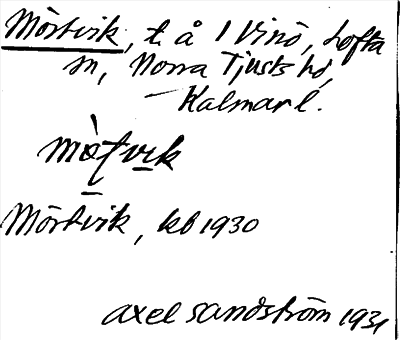 Mörtvik, t. å 1 Vinö, Lofta
sn, Norra Tjusts hd,
Kalmar l.
mœ̀tvik
Mörtvik, kb 1930
Axel Sandström 1931